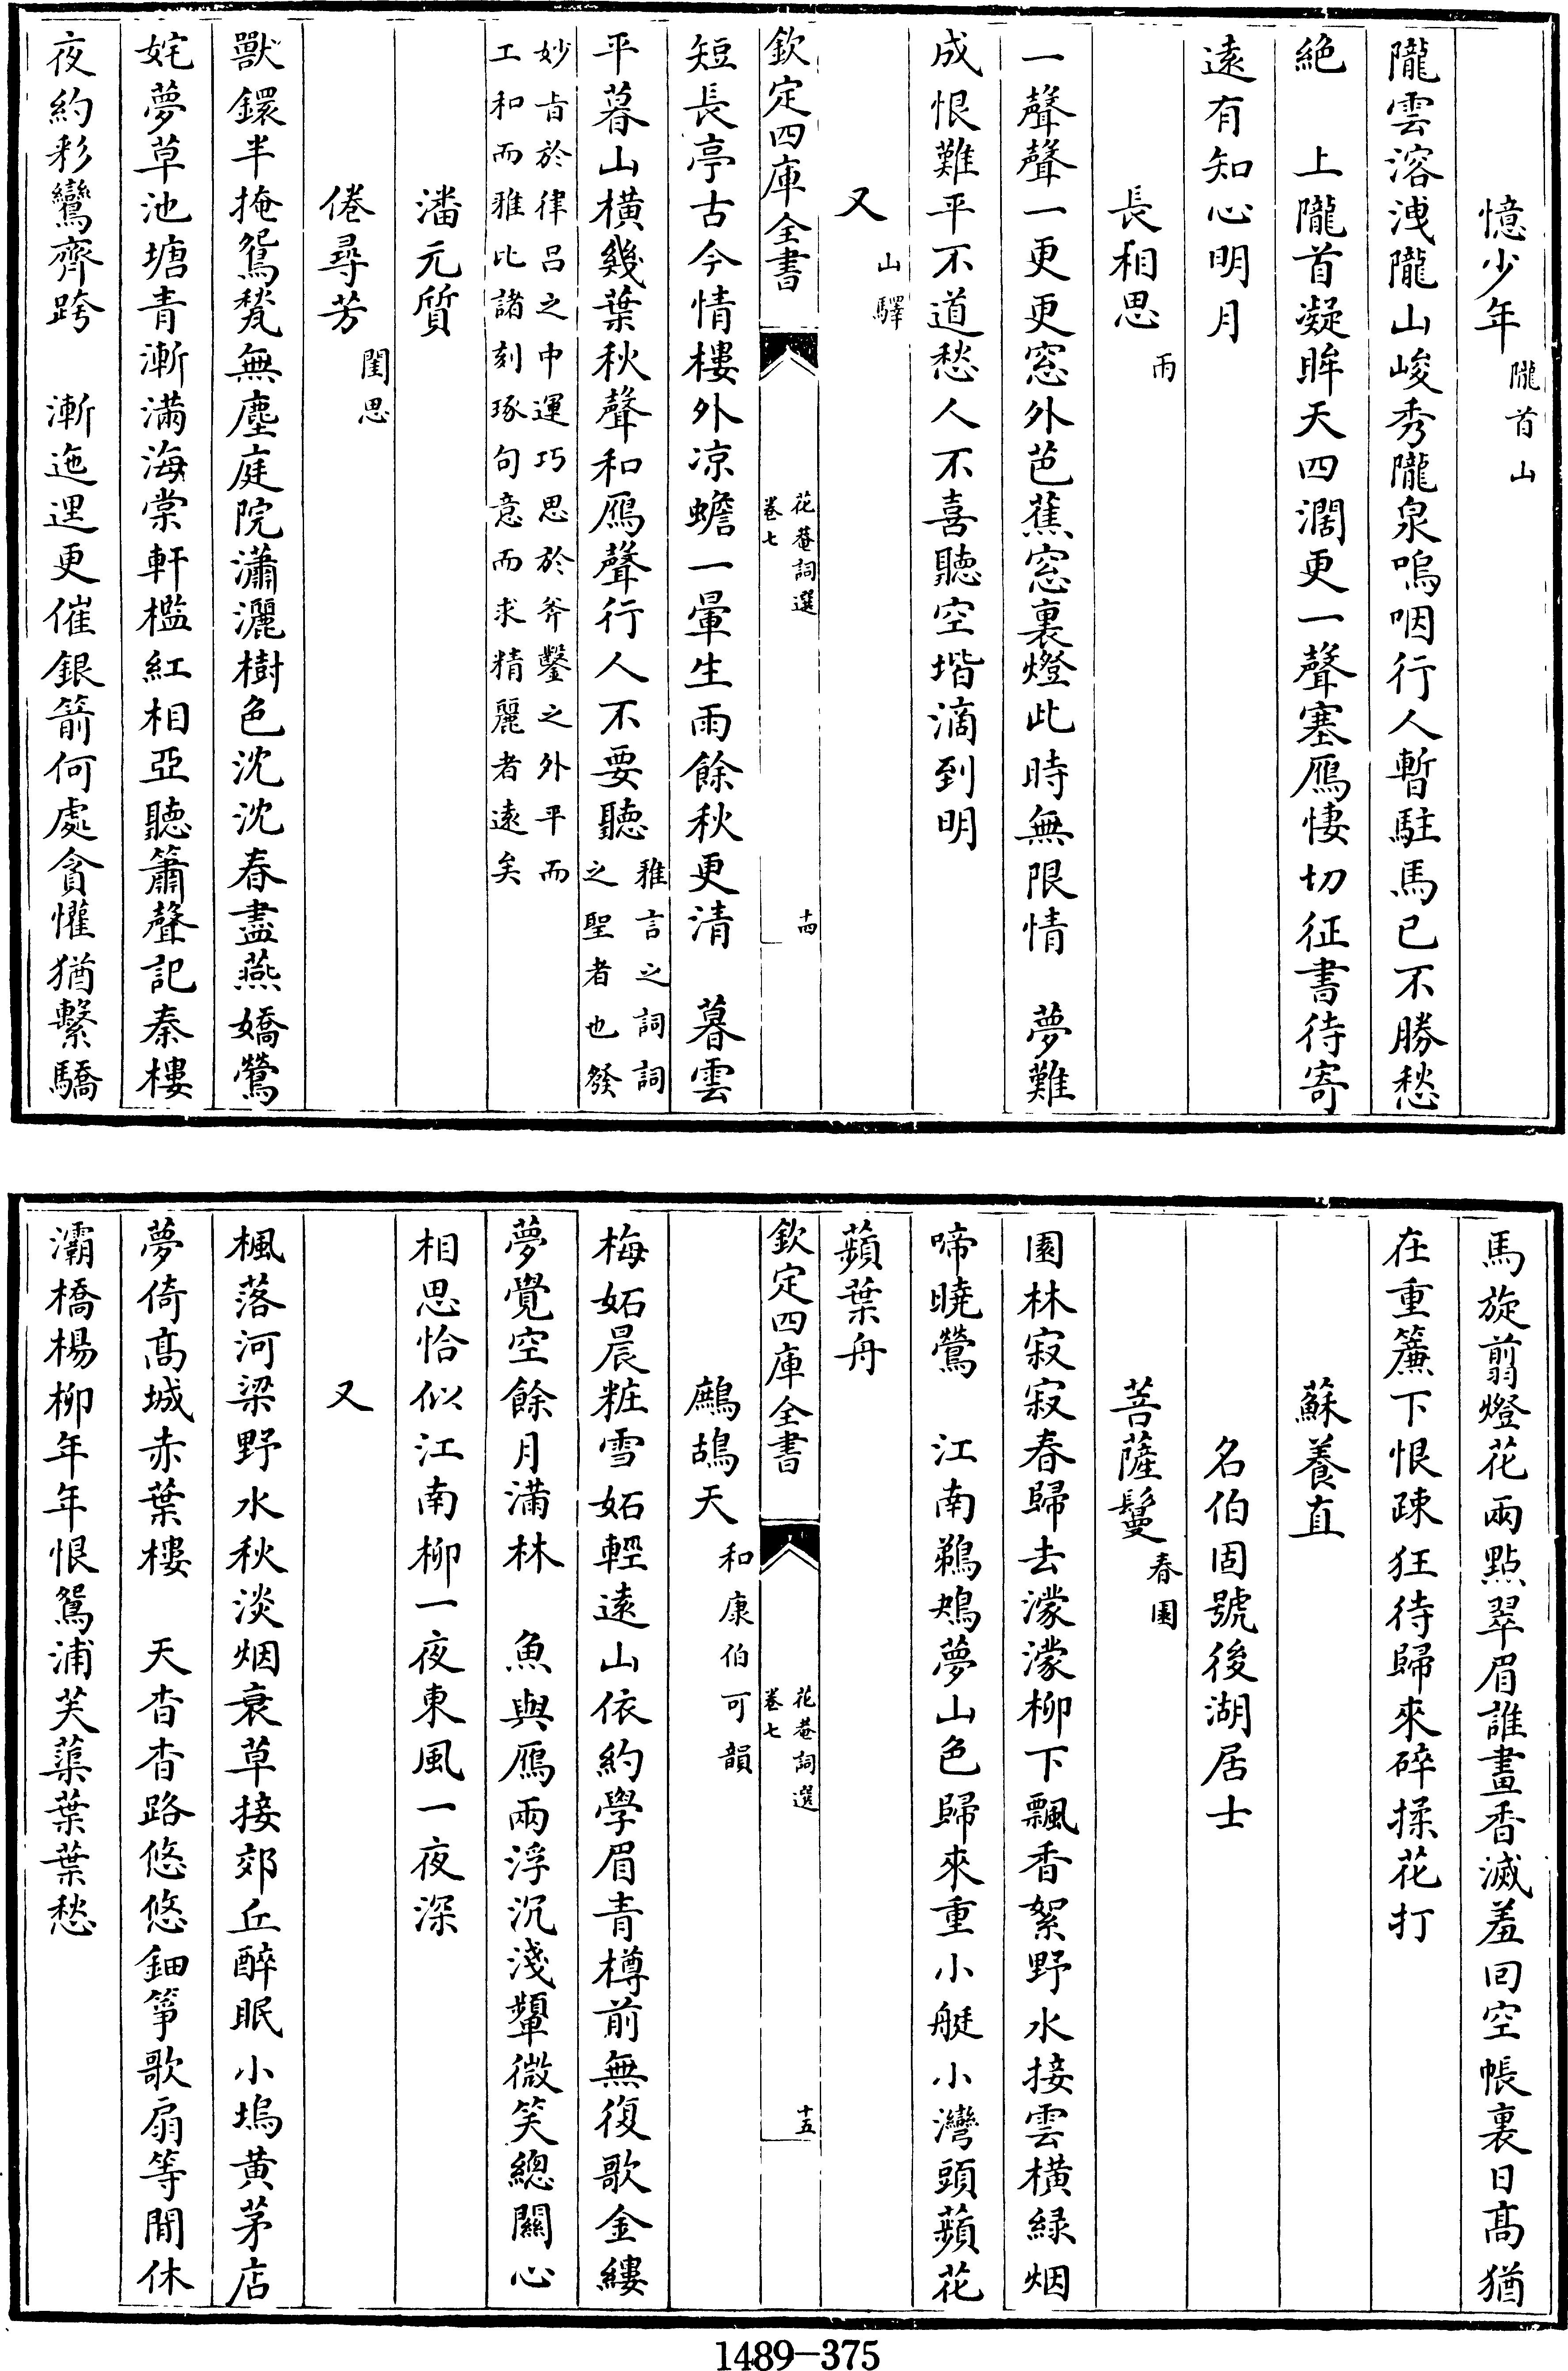 憶少年隴首山
隴雲溶洩隴山峻秀隴泉嗚咽行人暫駐馬已不勝愁
絶　上隴首凝眸天四濶更一聲塞鴈悽切征書待寄
遠有知心明月
長相思雨
一聲聲一更更窓外芭蕉窓裏燈此時無限情　夢難
成恨難平不道愁人不喜聽空堦滴到明
又山驛
欽定四庫全書
花菴詞選
卷七
十四
短長亭古今情樓外凉蟾一暈生雨餘秋更清　暮雲
平暮山横幾葉秋聲和鴈聲行人不要聽雅言之詞詞
之聖者也發
妙㫖於律吕之中運巧思於斧鑿之外平而
工和而雅比諸刻琢句意而求精麗者遠矣
潘元質
倦尋芳閨思
獸鐶半掩鴛甃無塵庭院瀟灑樹色沈沈春盡燕嬌鶯
姹夢草池塘青漸滿海棠軒檻紅相亞聽簫聲記秦樓
夜約彩鸞齊跨　漸迤逗更催銀箭何處貪懽猶繫驕
馬旋翦燈花兩點翠眉誰畫香滅羞囘空帳裏日髙猶
在重簾下恨疎狂待歸來碎揉花打
蘇養直
名伯固號後湖居士
菩薩鬘春園
園林寂寂春歸去濛濛柳下飄香絮野水接雲横緑烟
啼曉鶯　江南鵜鴂夢山色歸來重小艇小灣頭蘋花
蘋葉舟
欽定四庫全書
花菴詞選
卷七
十五
鷓鴣天和康伯可韻
梅妬晨粧雪妬輕遠山依約學眉青樽前無復歌金縷
夢覺空餘月滿林　魚與鴈兩浮沉淺顰微笑總關心
相思恰似江南柳一夜東風一夜深
又
楓落河梁野水秋淡烟衰草接郊丘醉眠小塢黄茅店
夢倚髙城赤葉樓　天杳杳路悠悠鈿筝歌扇等閒休
灞橋楊柳年年恨鴛浦芙蕖葉葉愁
1489-375